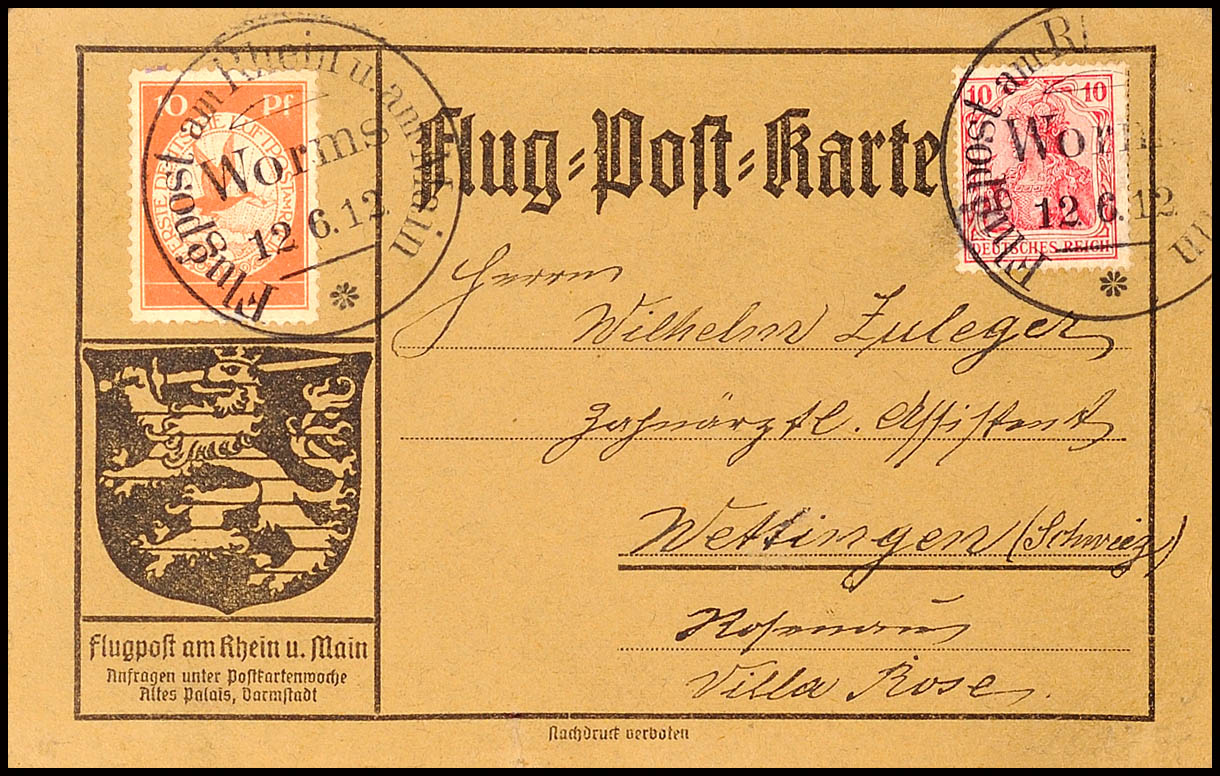 10 Pf
ERSTE DEUTSCHE LUFTPOST AM RHEIN
Flugpost am Rhein u. am Main
Worms
12.6.12
Flug-Post-Karte
10 10
DEUTSCHES REICH
Flugpost am Rh
Worms
12.6.12
in
Herrn
Wilhelm Zuleger
Zahnärztl. Assistent
Wettingen (Schweiz)
Rosenau
Villa Rose.
Flugpost am Rhein u. Main
Anfragen unter Postkartenwoche
Altes Palais, Darmstadt
Nachdruck verboten